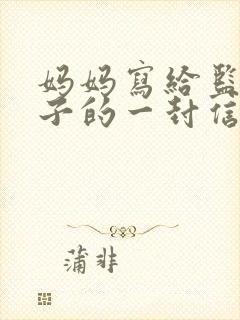 妈妈寫給監
子的一封信
蒲非